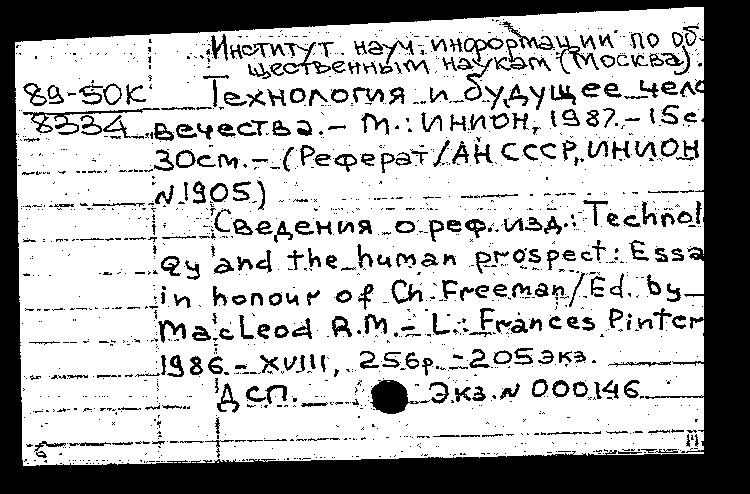 Институт науч. информации по об-
щественным наукам (Москва).
89-50К Технология и будущее чело
8334 вечества. - М.: ИНИОН, 1987. - 15с.
30см. - (Реферат/АН СССР, ИНИОН
N1905)
Сведения о реф. изд.: Technol
ogy and the human prospect: Essa
in honour of Ch. Freeman/Ed. by
MacLeod R.M. - L.: Frances Pinter
1986. - XVIII, 256p. - 205 экз.
ДСП. Экз. N 000146